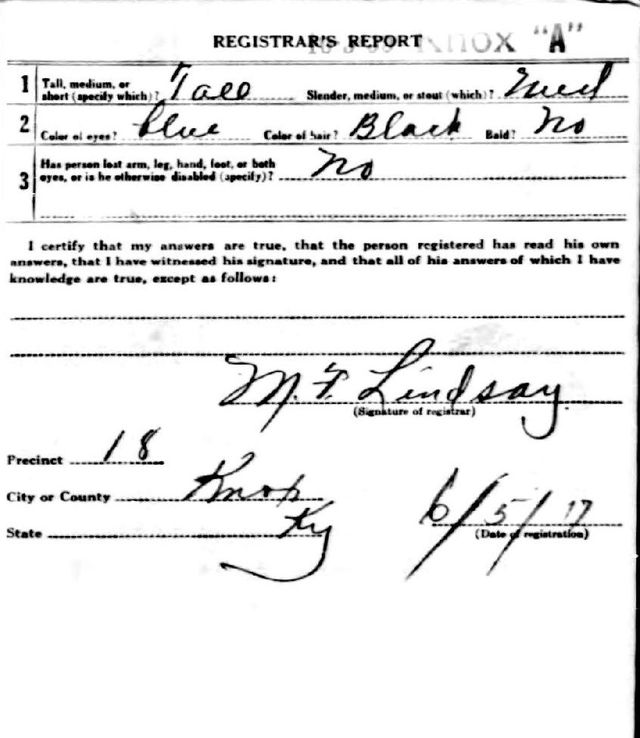 REGISTRAR'S REPORT KNOX "A"
1 Tall, medium, or short (specify which)? Tall Slender, medium, or stout (which)? Med
2 Color of eyes? blue Color of hair? Black Bald? No
3 Has person lost arm, leg, hand, foot, or both
eyes, or is he otherwise disabled (specify)? No
I certify that my answers are true, that the person registered has read his own
answers, that I have witnessed his signature, and that all of his answers of which I have
knowledge are true, except as follows:
M. F. Lindsay
(Signature of registrar)
Precinct 18
City or County Knox
State Ky 6/5/17
(Date of registration)